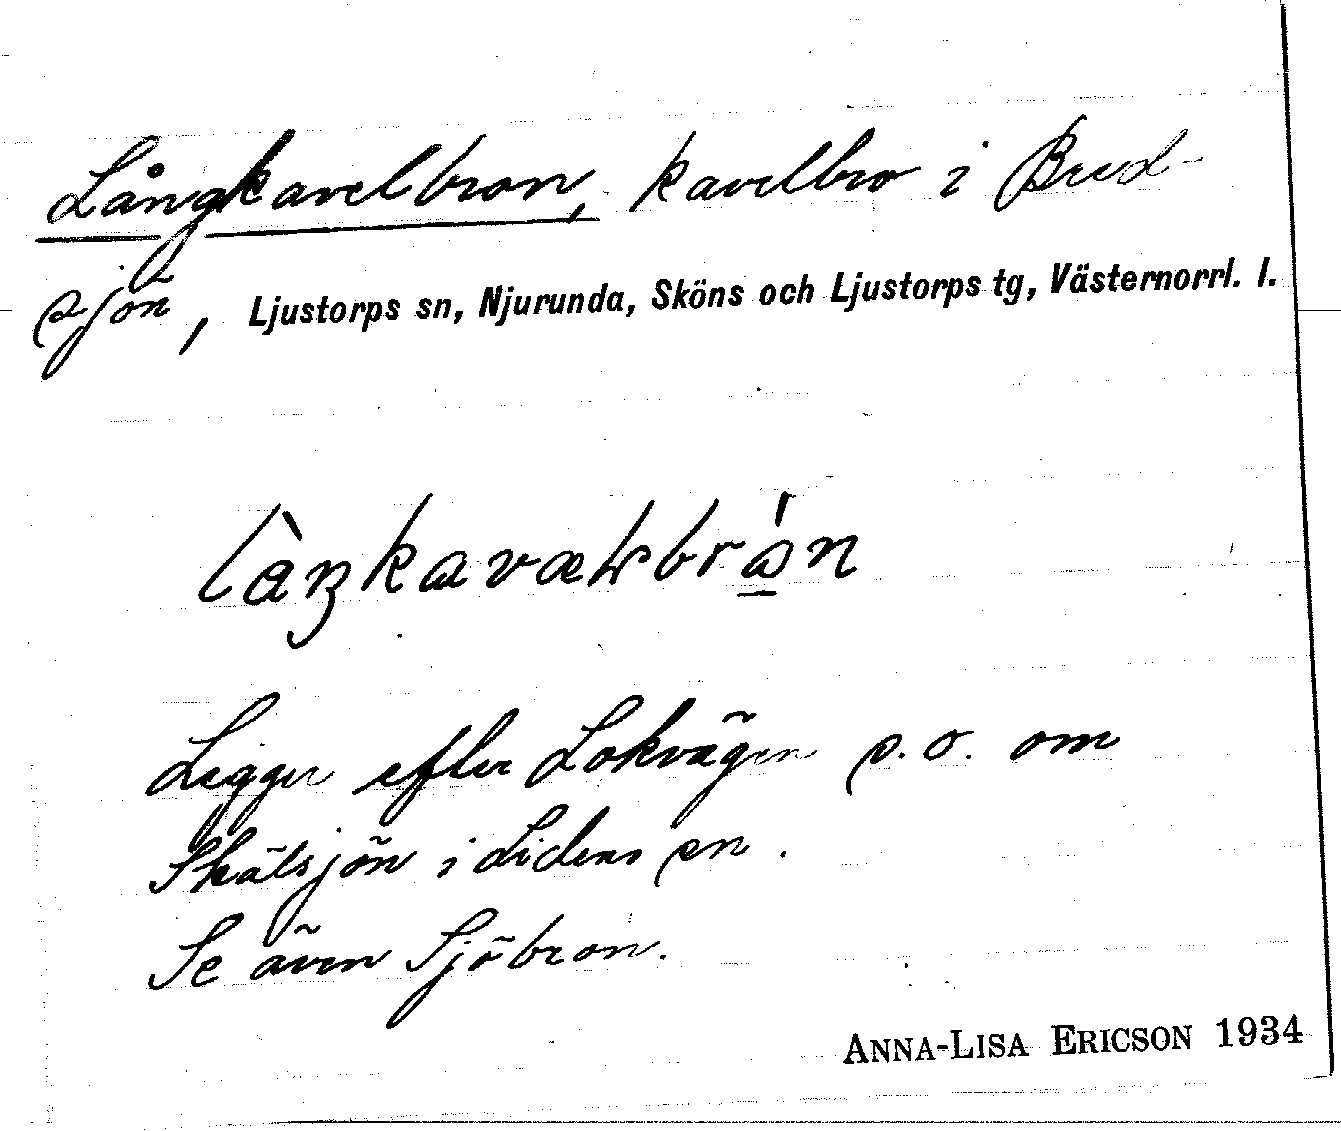 Långkavelbron, kavelbro i Bred-
sjön, Ljustorps sn, Njurunda, Sköns och Ljustorps tg, Västernorrl. l.
Ligger efter Lokvägen s.o. om
Skälsjön i Lidens sn.
Se även Sjöbron.
ANNA-LISA ERICSON 1934